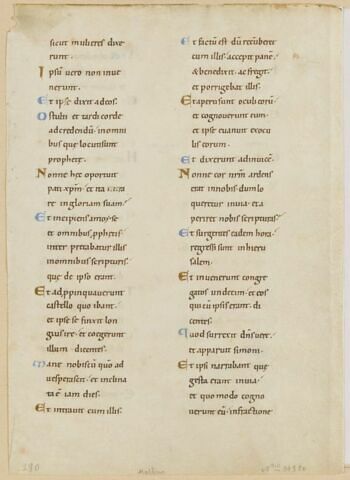 sicut mulieres dixe
runt.
Ipsū vero non inve
nerunt.
Et ipse dixit ad eos.
O stulti et tardi corde
ad credendū. in omni
bus que locuti sunt
prophetę.
Nonne hęc oportuit
pati xpm. et
re in gloriam suam?
Et incipiens a moyse
et omnibus pphetis
inter pretabatur illis
in omnibus scripturis.
quę de ipso erant.
Et adppinquaverunt
castello quo ibant.
et ipse se finxit lon
gius ire. et coegerunt
illum dicentes.
Mane nobiscū qm̄ ad
vesperascit. et inclina
ta ē iam dies.
Et intravit cum illis.
Et factū est dū recūberet
cum illis. accepit panē.
& benedixit. ac fregit.
et porrigebat illis.
Et aperti sunt oculi eorū
et cognoverunt eum.
et ipse evanuit ex ocu
lis eorum.
Et dixerunt adinvicē.
Nonne cor nrm̄ ardens
erat in nobis dum lo
queretur in via. et a
periret nobis scripturas?
Et surgentes eadem hora.
regressi sunt in hieru
salem.
Et invenerunt congre
gatos undecim. et eos
qui cū ipsis erant. di
centes.
Quod surrexit dn̄s vere.
et apparuit simoni.
Et ipsi narrabant quę
gesta erant in via.
et quo modo cogno
verunt eū. in fractione